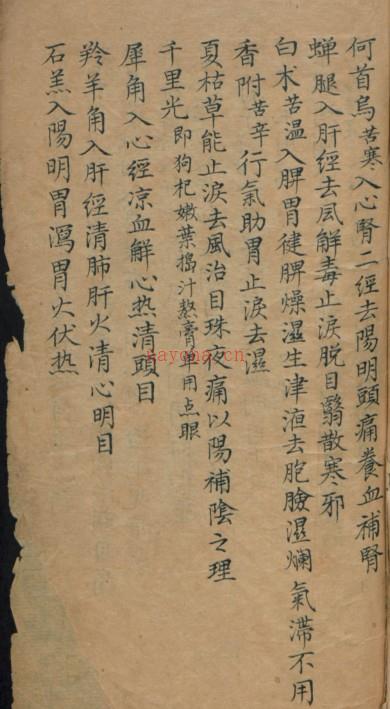 何首烏苦寒入心腎二經去陽明頭痛養血補腎
蟬腿入肝經去風解毒止淚脫目翳散寒邪
白术苦温入脾胃健脾燥濕生津液去胞臉濕爛氣滯不用
香附苦辛行氣助胃止淚去濕
夏枯草能止淚去風治目珠夜痛以陽補陰之理
千里光即狗杞嫩葉搗汁熬膏單用点眼
犀角入心經凉血解心热清頭目
羚羊角入肝經清肺肝火清心明目
石羔入陽明胃瀉胃火伏热
rayona.cn